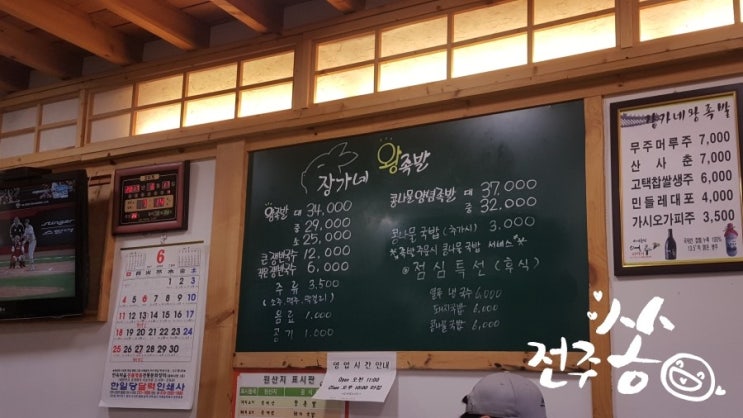 장가네 왕족발
왕족발 대 34,000
중 29,000
소 25,000
큰쟁반국수 12,000
작은쟁반국수 6,000
주류 3,500
(소주, 맥주, 막걸리)
음료 1,000
공기 1,000
콩나물양념족발 대 37,000
중 32,000
콩나물국밥 (추가시) 3,000
족발 주문시 콩나물국밥 서비스
점심특선 (후식)
냉국수 6,000
돼지국밥 6,000
콩나물국밥 6,000
장가네왕족발
무주머루주 7,000
산사춘 7,000
고택찹쌀생주 6,000
민들레대포 4,000
가시오가피주 3,500
6
4 5 6 7 8 9 10
11 12 13 14 15 16 17
18 19 20 21 22 23 24
25 26 27 28 29 30
한일달력인쇄사
영업시간안내
Open 오전 11:00
원산지 표시판
전주송